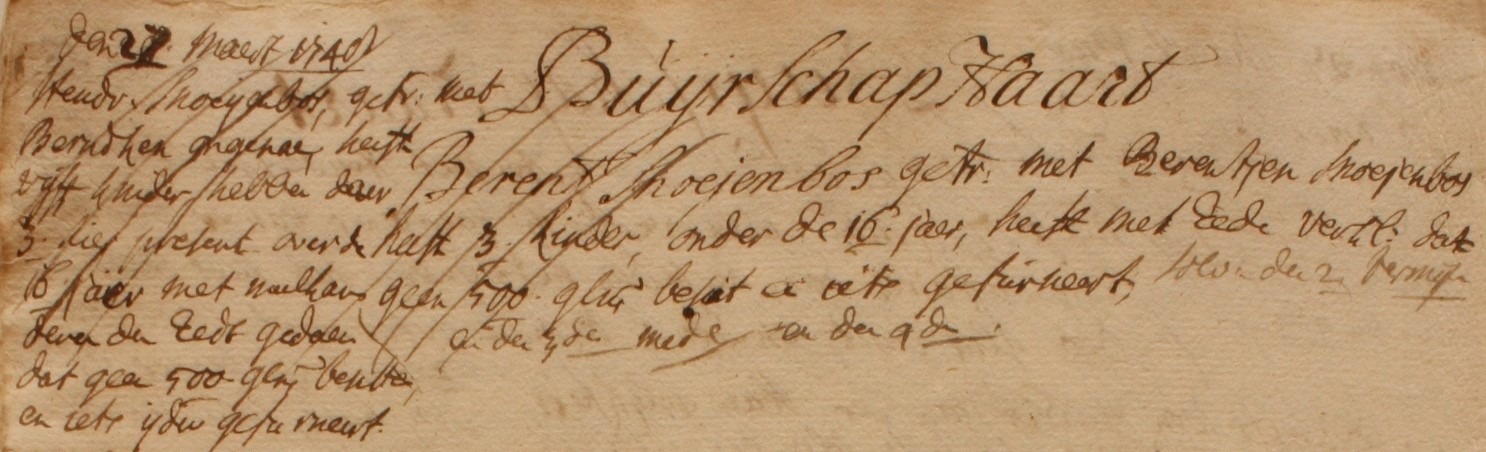 den 27 maert 1748
Hendr. Snoeyebos, getr: met
Berndken
vijff kinder, hebben daer
3. hier present over de
16 jaer met malkan
deren den Eedt gedaen
dat geen 500 glns besitten,
en iets ijder gefurneert.
Buijrschap Haart
Berent Snoejenbos getr: met Berentjen Snoejenbos
heeft 3. kinder, onder de 16. jaer, heeft met Eede verkl: dat
geen 500. glns besit en iets gefurneert, solv: den 2
en den 3de mede en den 4de